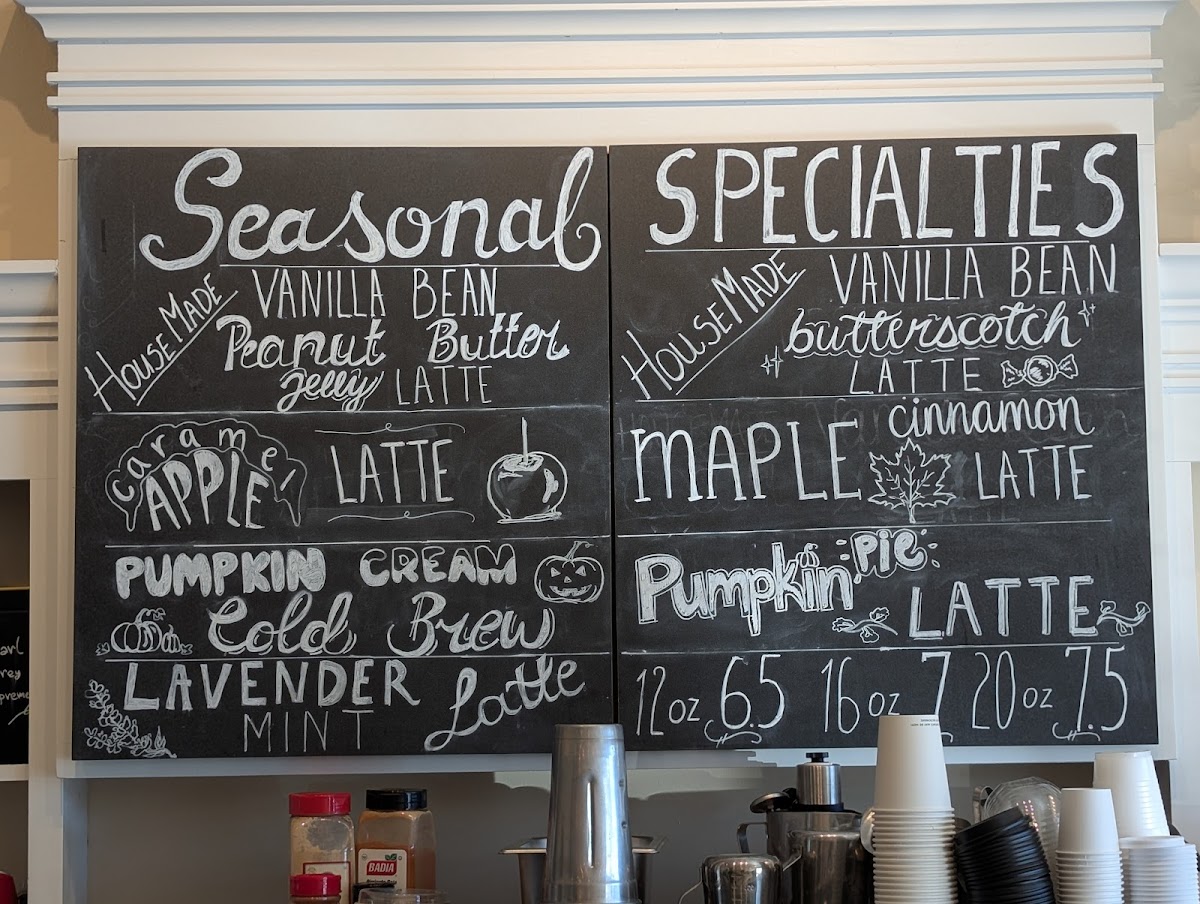 Seasonal
HOUSEMADE
VANILLA BEAN
Peanut Butter
Jelly LATTE
caramel
APPLE LATTE
PUMPKIN CREAM
Cold Brew
LAVENDER
MINT Latte
SPECIALTIES
HOUSEMADE
VANILLA BEAN
butterscotch
LATTE
MAPLE cinnamon
LATTE
Pumpkin Pie
LATTE
12oz 6.5 16oz 7 20oz 7.5
BADIA